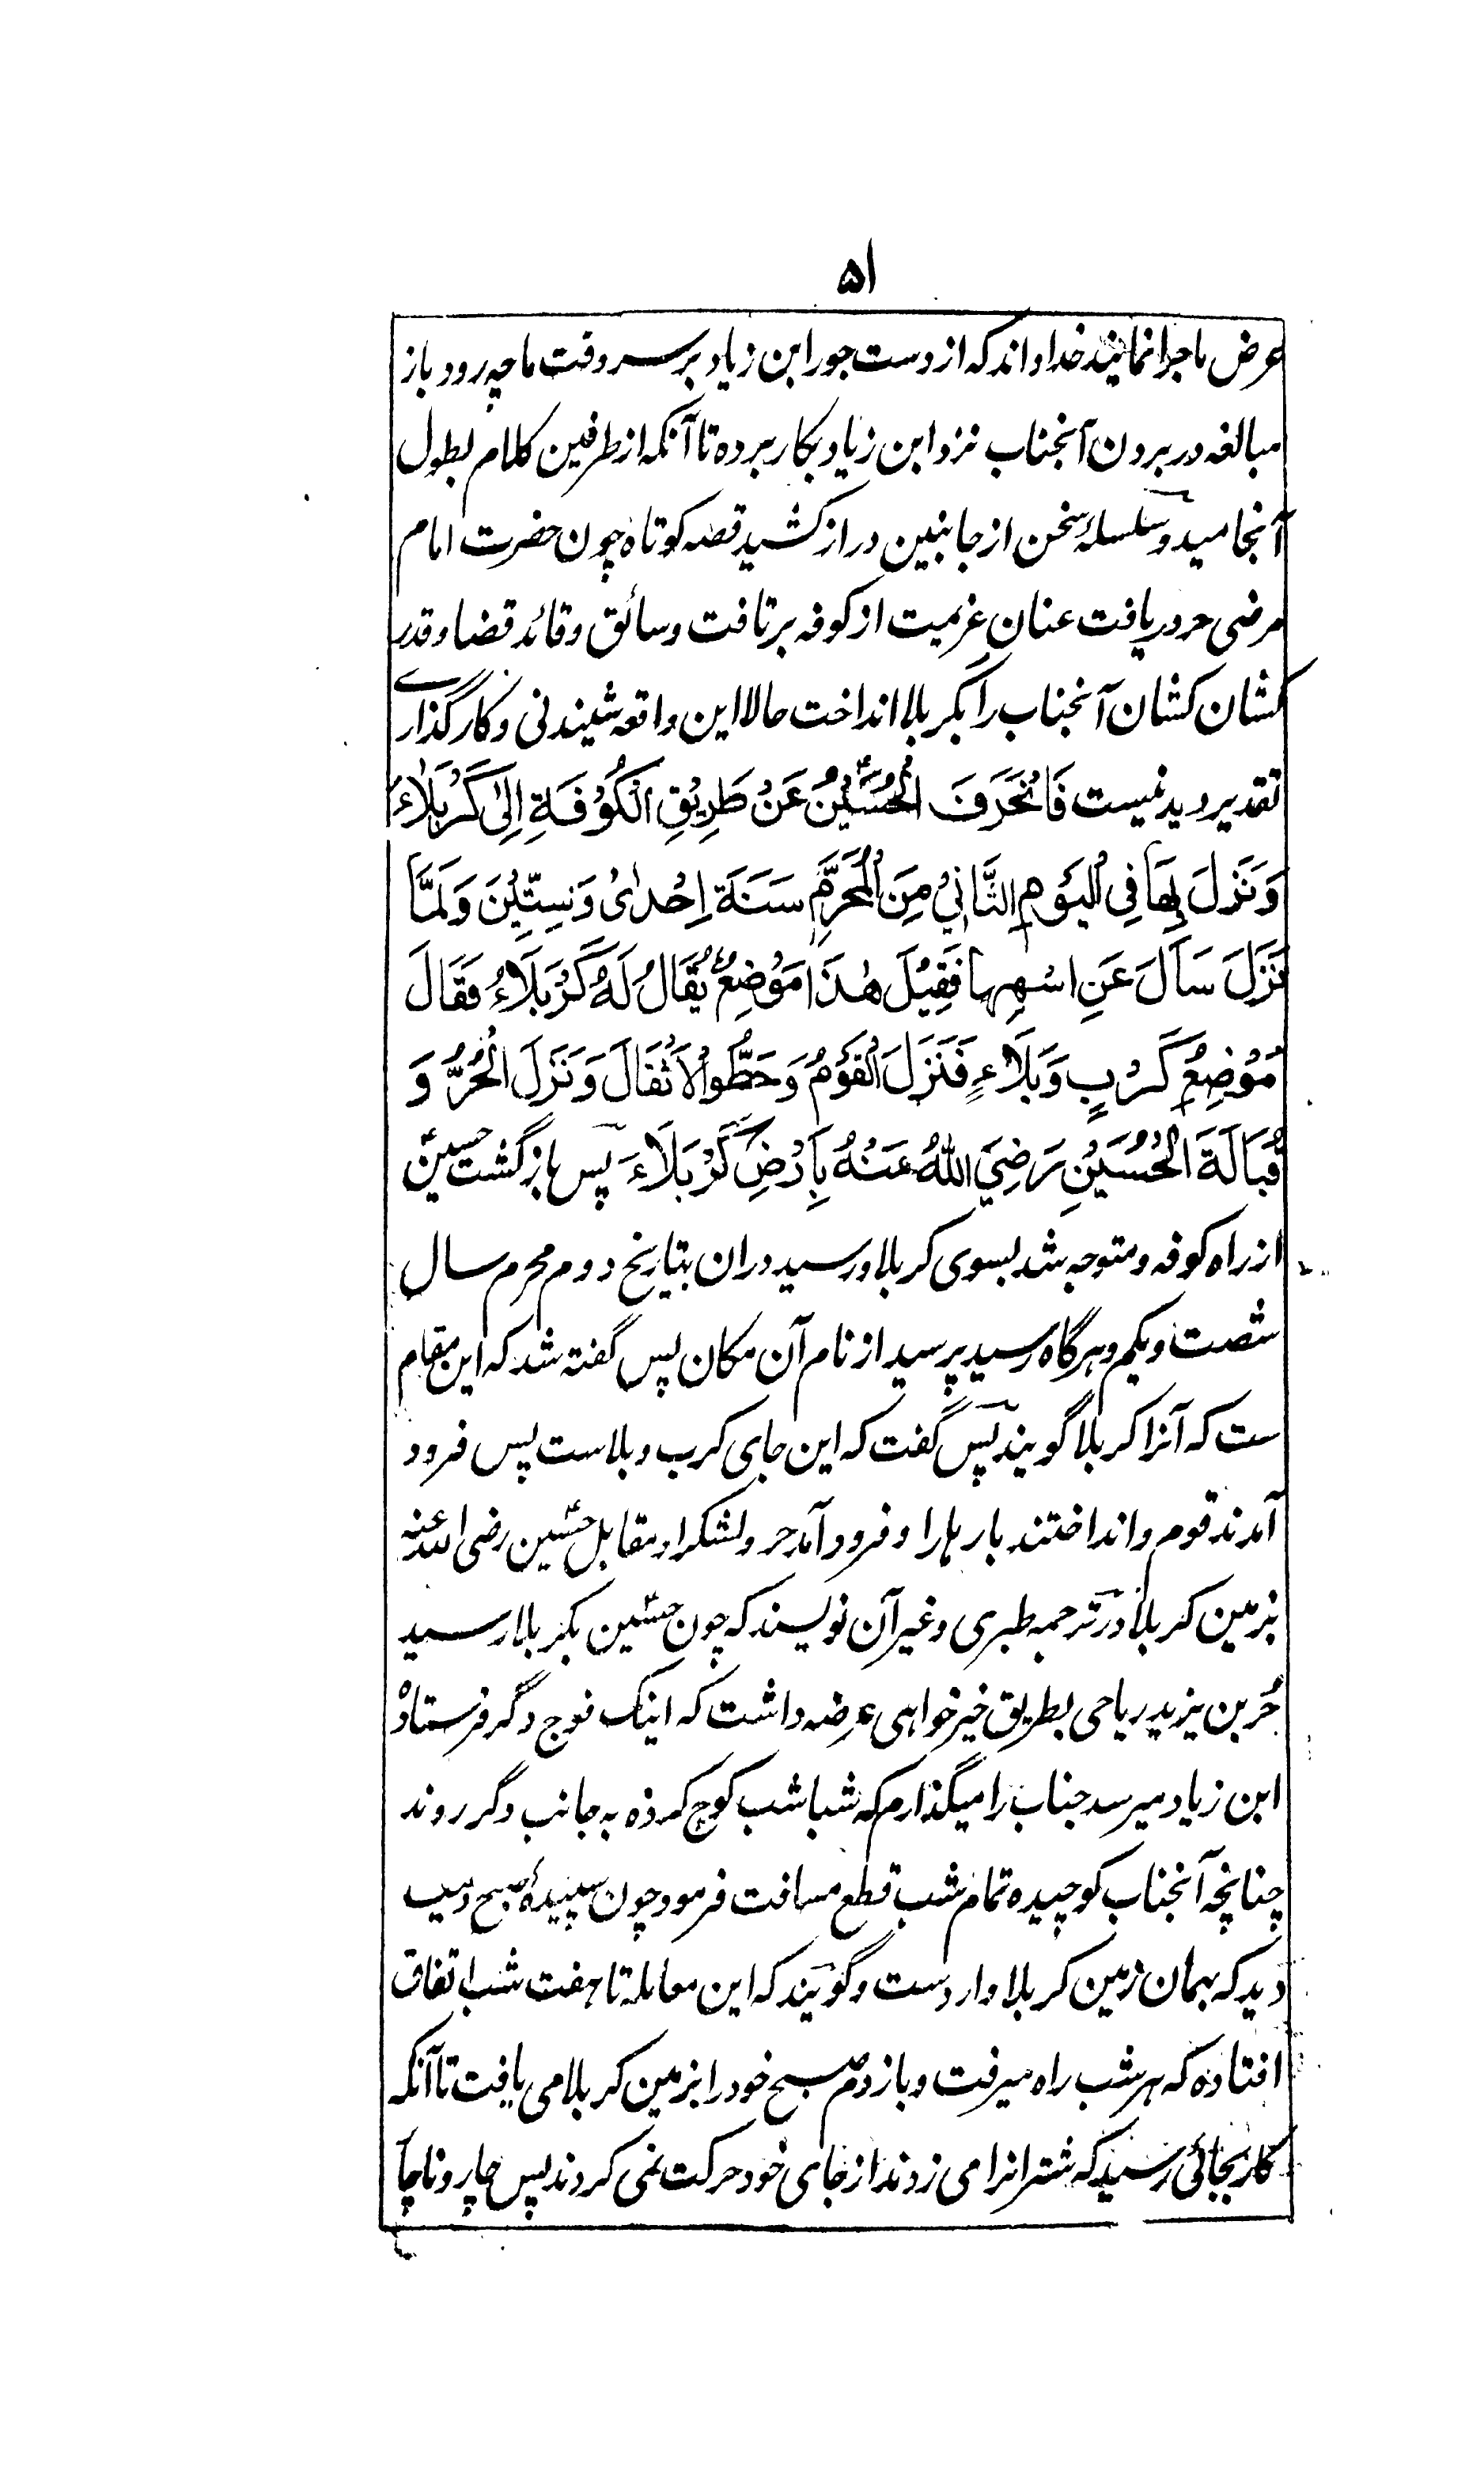 ۵۱
عرض ماجرا نمایند خدا داند که از دست جور ابن زیاد بر سر وقت ما چه رود باز
مبالغه در بردن آنجناب نزد ابن زیاد بکار برده تا آنکه از طرفین کلام بطول
آنجامید و سلسلهٔ سخن از جانبین دراز کشید قصه کوتاه چون حضرت امام
مرضی حر دریافت عنان عزیمت از کوفه برتافت و سائق و قائد قضا و قدر
کشان کشان آنجناب را بکربلا انداخت حالا این واقعه شنیدنی و کارگذاری
تقدیر دیدنیست فَانْحَرَفَ الْحُسَیْنُ عَنْ طَرِیْقِ الْکُوْفَةِ اِلٰی کَرْبَلَاءَ
وَنَزَلَ بِهَا فِی الْیَوْمِ الثَّانِیْ مِنَ الْمُحَرَّمِ سَنَةَ اِحْدٰیْ وَسِتِّیْنَ وَلَمَّا
نَزَلَ سَاَلَ عَنِ اسْمِهَا فَقِیْلَ هٰذَا مَوْضِعٌ یُقَالُ لَهُ کَرْبَلَاءُ فَقَالَ
مَوْضِعُ کَرْبٍ وَبَلَاءٍ فَنَزَلَ الْقَوْمُ وَحَطُّوا الْاَثْقَالَ وَنَزَلَ الْحُرُّ وَ
قُبَالَةَ الْحُسَیْنِ رَضِیَ اللّٰهُ عَنْهُ بِاَرْضِ کَرْبَلَاءَ پس بازگشت حسینؑ
از راه کوفه و متوجه شد بسوی کربلا و رسید دران بتاریخ دوم محرم سال
شصت و یکم و هرگاه رسید پرسید از نام آن مکان پس گفته شد که این مقام
ست که آنرا کربلا گویند پس گفت که این جای کرب و بلاست پس فرود
آمدند قوم و انداختند بارها را و فرود آمد حر و لشکر او مقابل حسین رضی الله عنه
بزمین کربلا و در ترجمه طبری و غیر آن نویسند که چون حسینؑ بکربلا رسید
حُر بن یزید ریاحی بطریق خیرخواهی عرضه داشت که اینک فوج دگر فرستادهٔ
ابن زیاد میرسد جناب را میگذارم که شباشب کوچ کرده به جانب دگر روند
چنانچه آنجناب کوچیده تمام شب قطع مسافت فرمود چون سپیدهٔ صبح دمید
دید که بهمان زمین کربلا وارد ست و گویند که این معامله تا هفت شب اتفاق
افتاده که هر شب راه میرفت و باز دم صبح خود را بزمین کربلا می یافت تا آنکه
کار بجائی رسید که شتران را می زدند از جای خود حرکت نمی کردند پس چار و ناچار